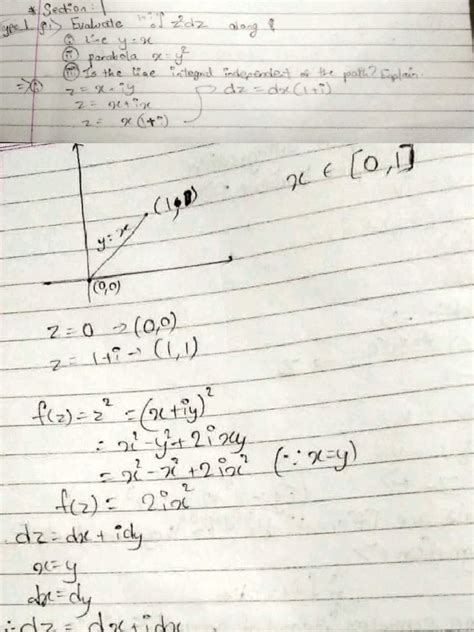 * Section: 1
Type 1 Q.1) Evaluate ₀∫¹⁺ⁱ z²dz along
(i) line y=x
(ii) parabola x=y²
(iii) Is the line integral independent of the path? Explain.
⇒(i) z = x+iy dz = dx(1+i)
z = x+ix
z = x(1+i)
x ∈ [0,1]
(1,1)
y=x
(0,0)
z=0 → (0,0)
z=1+i → (1,1)
f(z)=z² = (x+iy)²
= x²-y²+2ixy
= x²-x²+2ix² (∵ x=y)
f(z) = 2ix²
dz=dx+idy
x=y
dx=dy
∴dz = dx+idx